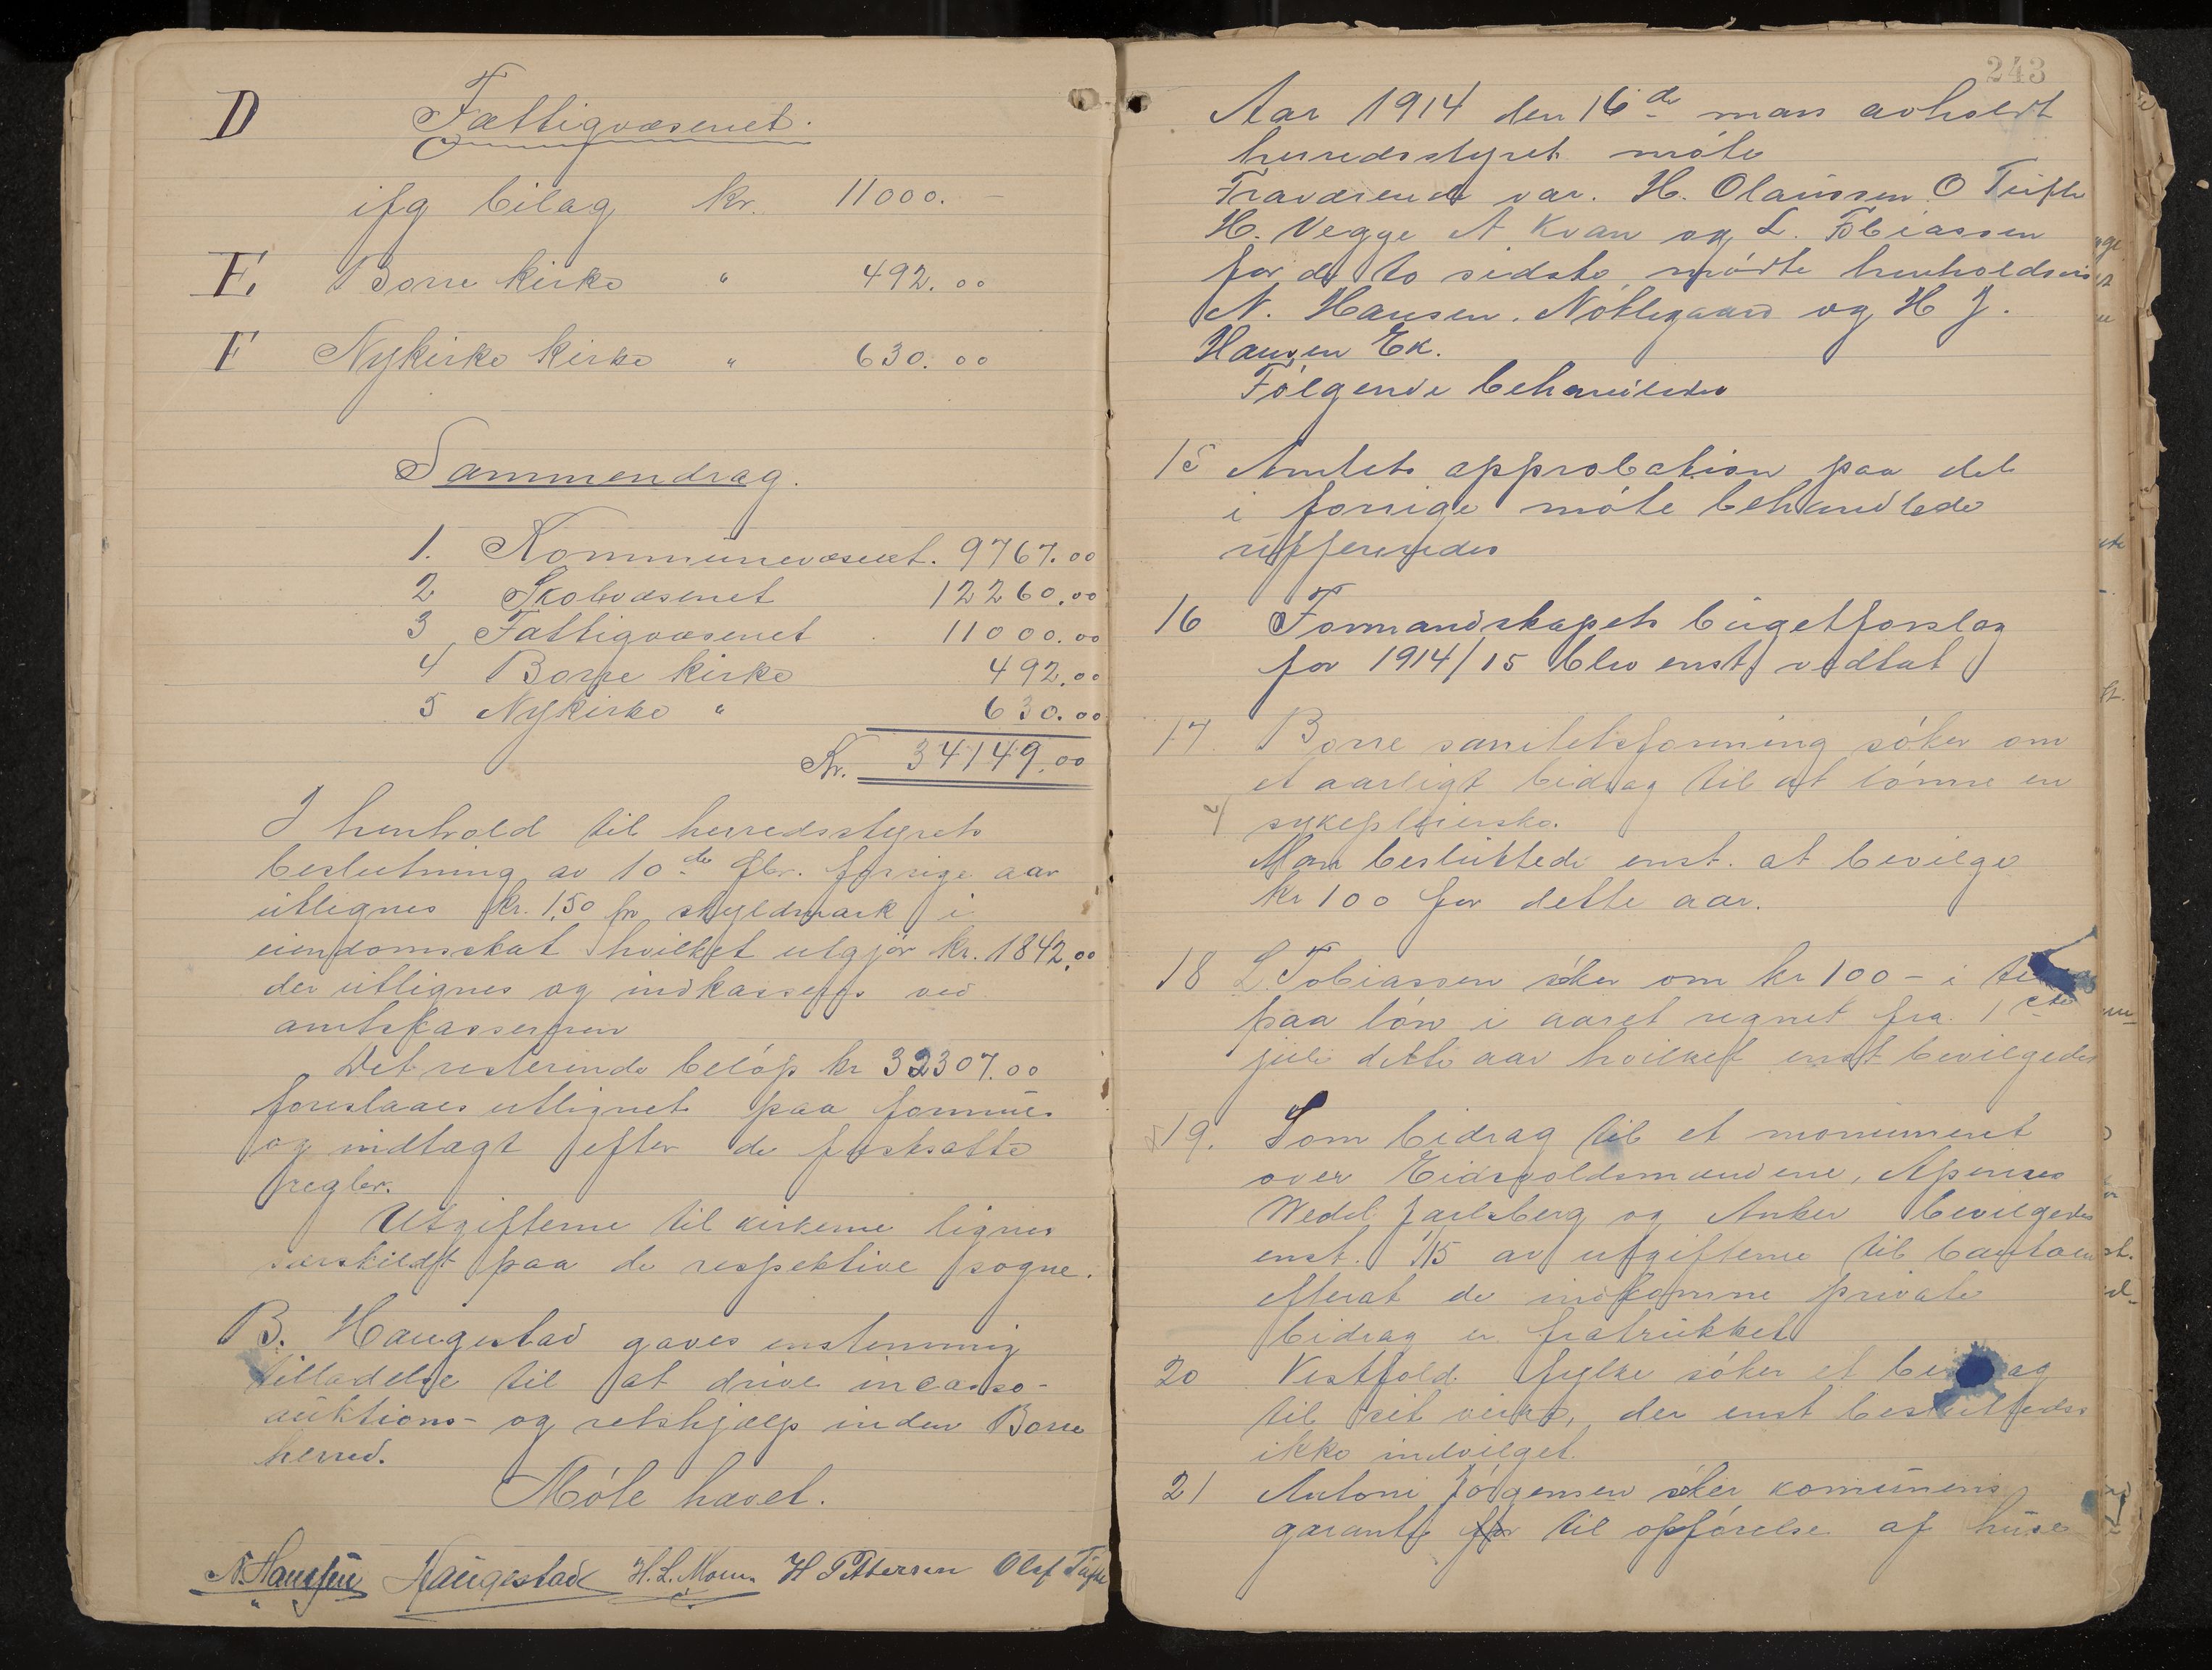 D Fattigvæsenet.
ifg bilag kr. 11000. –
E. Borre kirke " 492.00
F Nykirke kirke " 630.00
Sammendrag.
1. Kommunevæsenet. 9767.00
2 Skolevæsenet 12260.00
3 Fattigvæsenet . 11000.00
4 Borre kirke 492.00
5 Nykirke " 630.00
Kr. 34149.00
I henhold til herredsstyrets
beslutning av 10de fbr. forrige aar
utlignes kr. 1,50 pr skyldmark i
eiendomsskat hvilket utgjør kr. 1842.00
der utlignes og indkasseres ved
amtskassereren
Det resterende beløp kr 32307.00
foreslaaes utlignet paa formues
og indtægt efter de fastsatte
regler.
Utgifterne til kirkerne lignes
særskildt paa de respektive sogne.
B. Haugestad gaves enstemmig
tilladelse til at drive incasso-
auktions- og retshjælp inden Borre
herred.
Møte hævet.
N. Hanssen Haugestad H. L. Moum H Pettersen Olaf Tufte
243
Aar 1914 den 16de mars avholdt
herredsstyret møte
Fraværende var. H. Olaussen O Tufte
H. Vegge A Kvan og L. Tobiassen
for de to sidste møtte henholdsvis
N. Hansen. Nøklegaard og H J.
Hansen Ek.
Følgende behandledes
15 Amtets approbation paa det
i forrige møte behandlede
refferertes
16 Formandskapets bugetforslag
for 1914/15 blev enst, vedtat
17. Borre sanitetsforening søker om
et aarligt bidrag til at lønne en
sykepleierske.
Man besluttede enst. at bevilge
kr 100 for dette aar.
18 L. Tobiassen søker om kr 100 – i
paa løn i aaret regnet fra 1ste
juli dette aar hvilket enst bevilgedes
19. Som bidrag til et monument
over Eidsvoldsmændene,
Wedel Jarlsberg og Anker bevilgedes
enst. 1/15 av utgifterne til bautaen
efterat de indkomne private
bidrag er fratrukket
20 Vestfold fylke søker et bidrag
til sit virke, der enst besluttedes
ikke indvilget.
21 Antoni Jørgensen søker komunens
garanti for til opførelse af huse